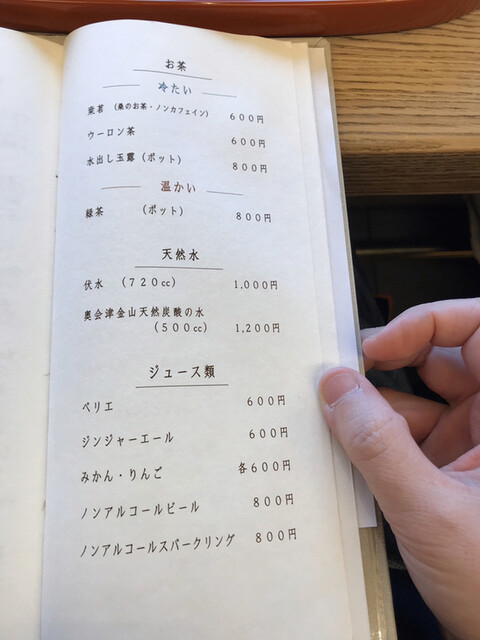 お茶
冷たい
桑茗 (桑のお茶・ノンカフェイン) 600円
ウーロン茶 600円
水出し玉露(ポット) 800円
温かい
緑茶 (ポット) 800円
天然水
伏水 (720cc) 1,000円
奥会津金山天然炭酸の水
(500cc) 1,200円
ジュース類
ペリエ 600円
ジンジャーエール 600円
みかん・りんご 各600円
ノンアルコールビール 800円
ノンアルコールスパークリング 800円